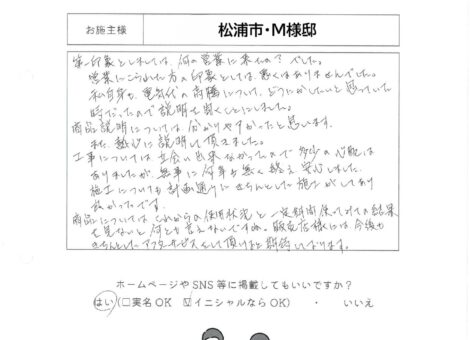 お施主様
松浦市・M様邸
第一印象としましては、何の営業に来たの?でした。
営業にこられた方の印象としては、悪くはありませんでした。
私自身も、電気代の高騰について、どうにかしたいと思っていた
時だったので説明を聞くことにしました。
商品説明については、分かりやすかったと思います。
また、熱心に説明して頂きました。
工事については立会い出来なかったので多少の心配は
ありましたが、無事に何事も無く終え安心しました。
施工についても計画通りにきちんとした施工がしてあり
良かったです。
商品については、これからの使用状況と一定期間使ってみての結果
を見ないと何とも言えないですが、販売店様には、今後も
きちんとしたアフターサービスをして頂けると期待しております。
ホームページやSNS等に掲載してもいいですか?
はい(□実名OK ☑イニシャルならOK) ・ いいえ